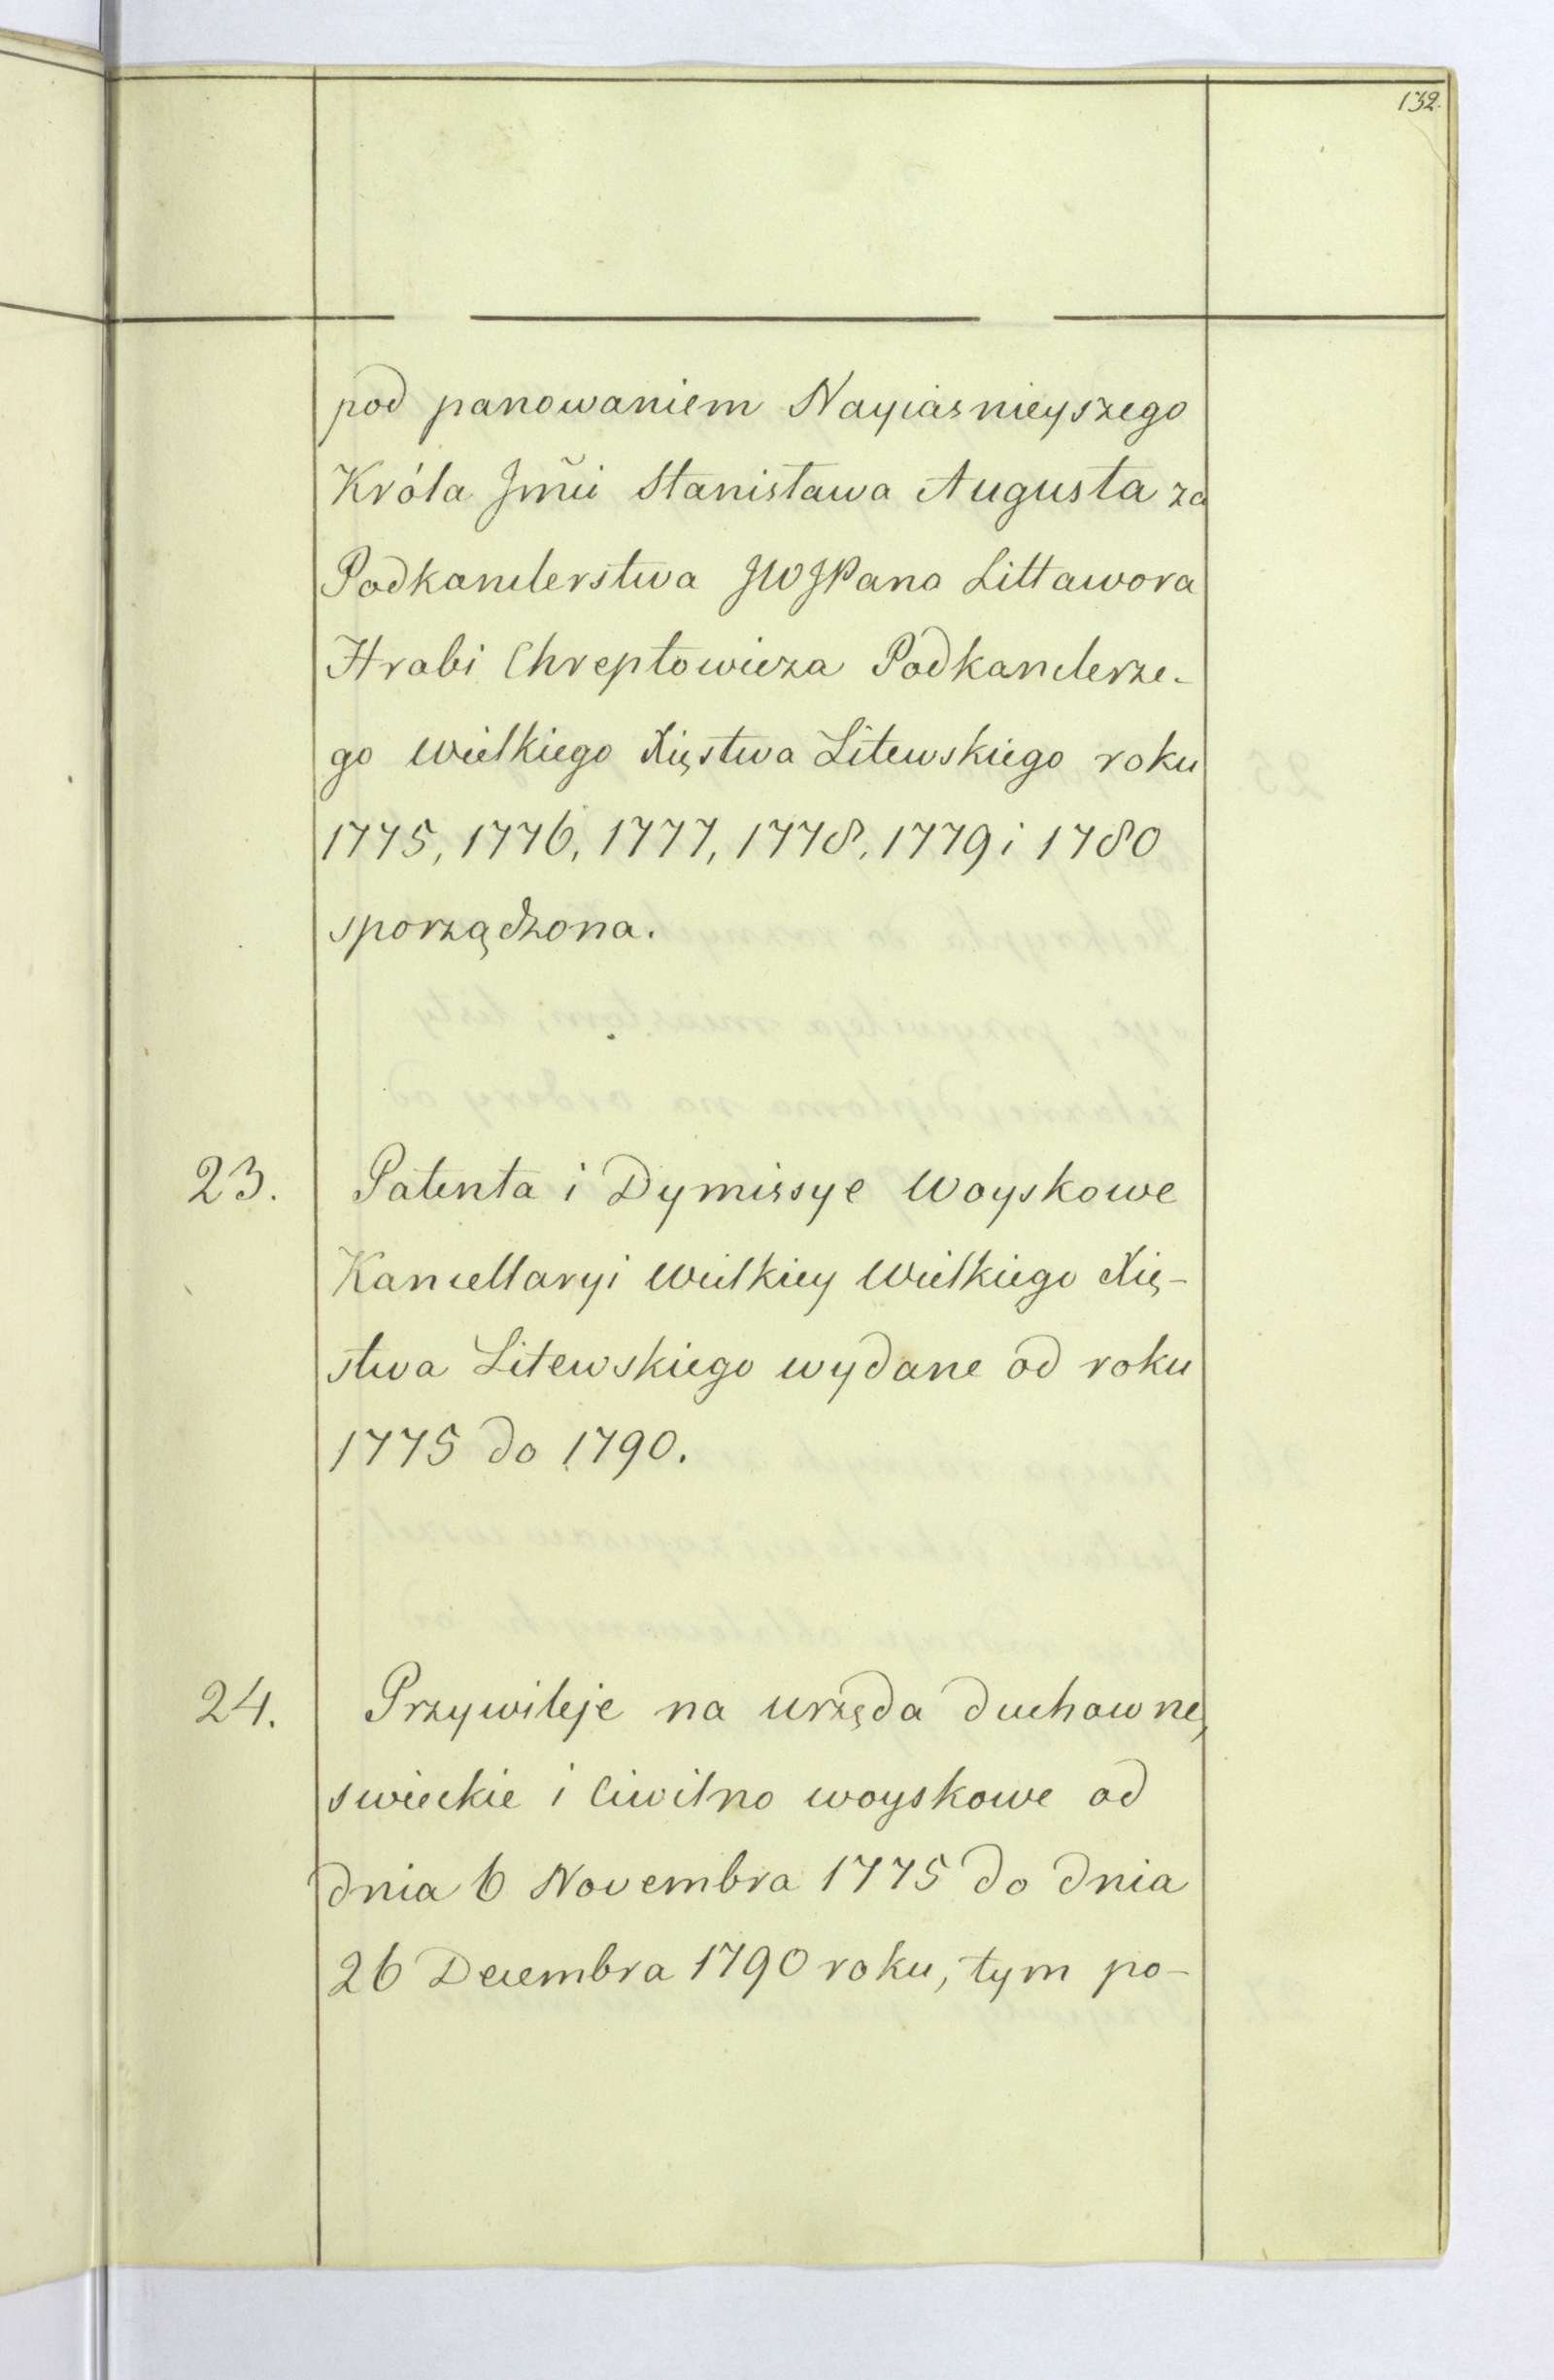 132.
pod panowaniem Nayiasnieyszego
Króla Jmĩi Stanisława Augusta za
Podkanclerstwa JWJPana Littawora
Hrabi Chreptowicza Podkanclerze-
go Wielkiego Xięstwa Litewskiego roku
1775, 1776, 1777, 1778, 1779 i 1780
sporządzona.
23. Patenta i Dymissye Woyskowe
Kancellaryi Wielkiey Wielkiego Xię-
stwa Litewskiego wydane od roku
1775 do 1790.
24. Przywileje na urzęda duchowne,
swieckie i Ciwilno woyskowe od
dnia 6 Novembra 1775 do dnia
26 Decembra 1790 roku, tym po-